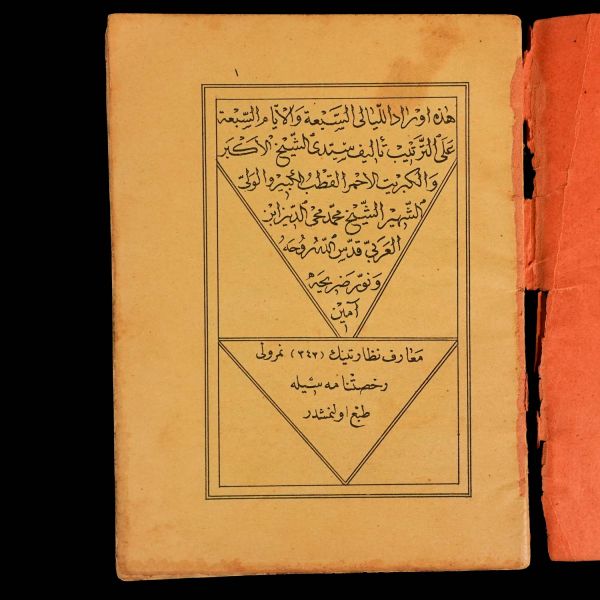 ١
هذه اوراد الليالى السَّبعة والايام السَّبعة
على التَّرتيب تأليف سيّدى الشيخ الاكبر
والكبريت الاحمر القطب الكبير والولىّ
الشهير الشيخ محمّد محى الدين ابن
العربىّ قدّس اللّٰه روحه
ونوّر ضريحه
آمين
معارف نظارتينك (٣٤٣) نمرولى
رخصتنامه سيله
طبع اولنمشدر